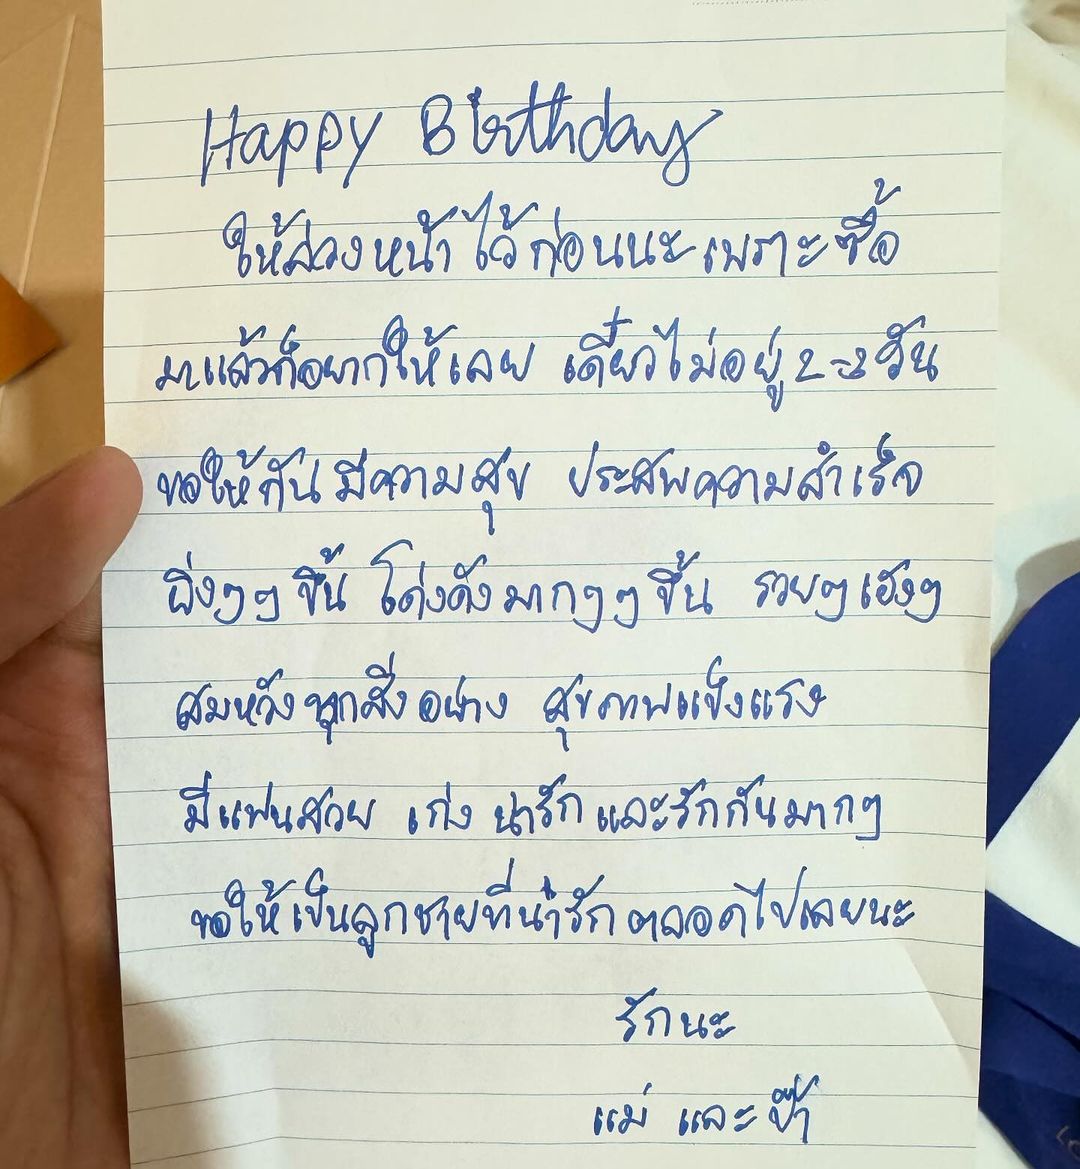 Happy Birthday
ให้ล่วงหน้าไว้ก่อนนะเพราะซื้อ
มาแล้วก็อยากให้เลย เดี๋ยวไม่อยู่ 2-3 วัน
ขอให้กันมีความสุข ประสพความสำเร็จ
ยิ่งๆๆ ขึ้น โด่งดังมากๆๆ ขึ้น รวยๆ เฮงๆ
สมหวังทุกสิ่งอย่าง สุขภาพแข็งแรง
มีแฟนสวย เก่ง น่ารัก และรักกันมากๆ
ขอให้เป็นลูกชายที่น่ารักตลอดไปเลยนะ
รักนะ
แม่ และป๊า